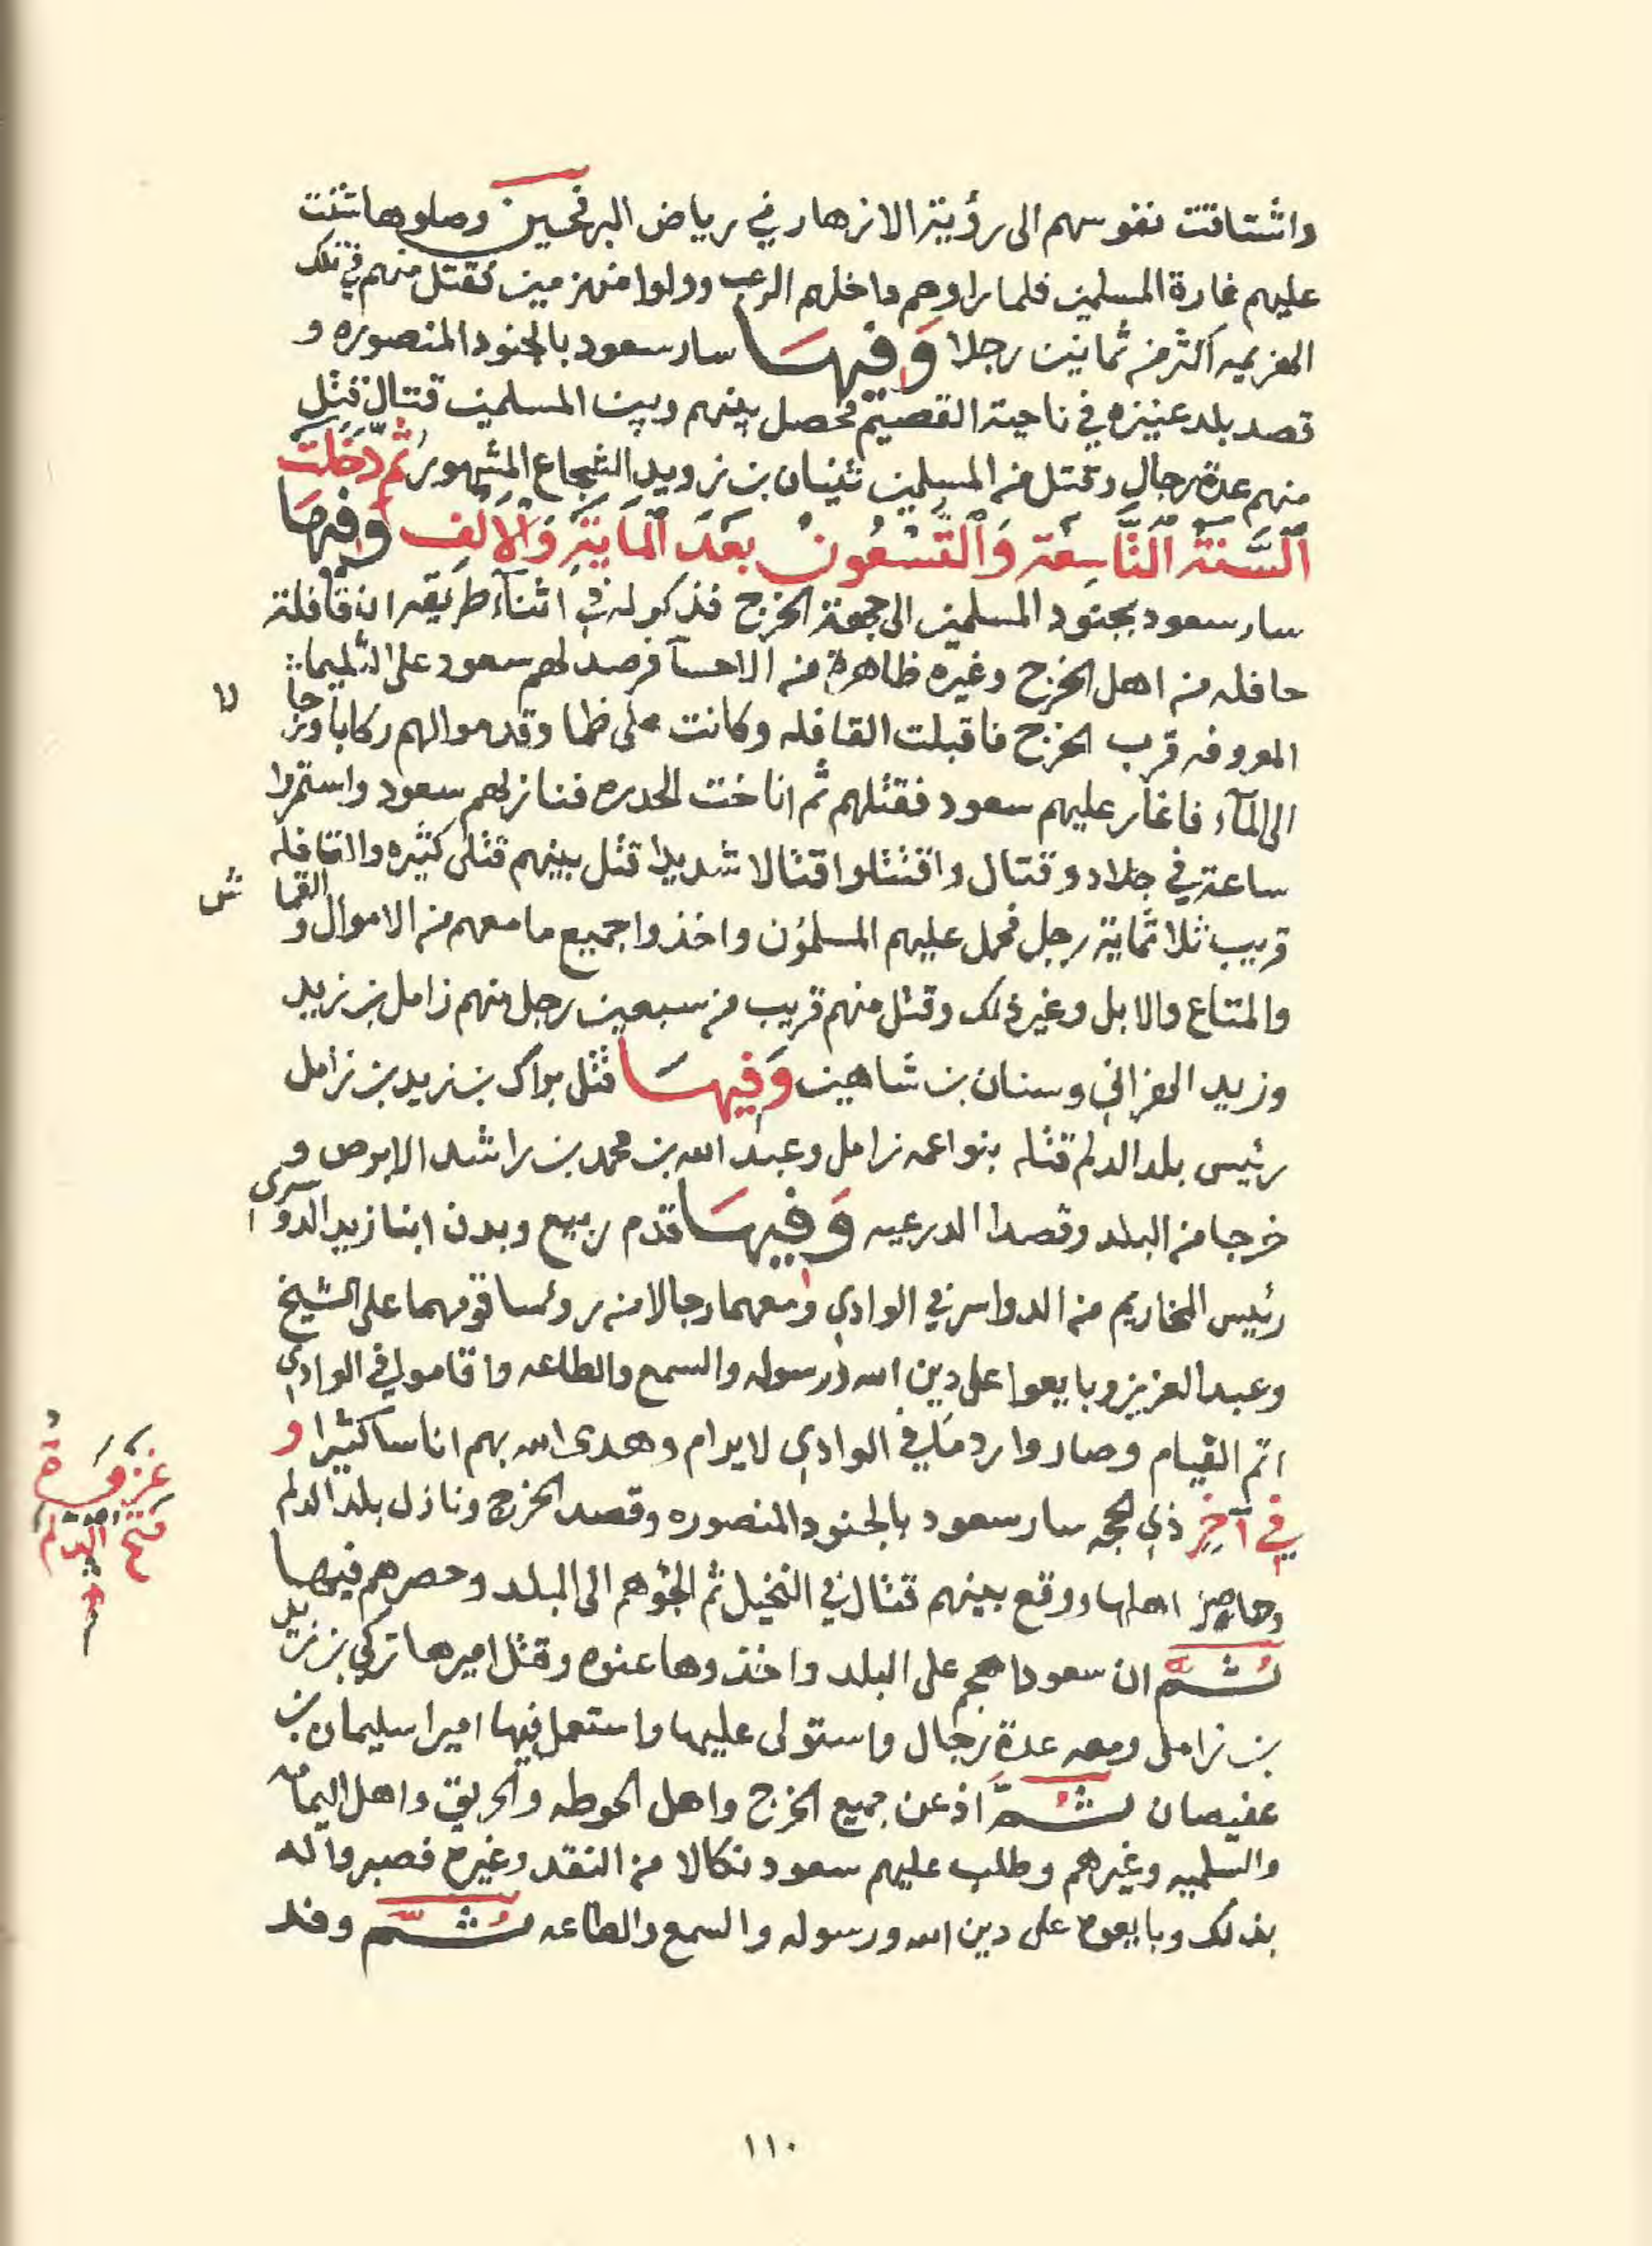 واشتاقت نفوسهم الى رؤية الازهار في رياض البر فحين وصلوها شنت
عليهم غارة المسلمين فلما راوهم داخلهم الرعب وولوا منهزمين فقتل منهم في تلك
الهزيمه اكثر من ثمانين رجلا وَفيهَا سار سعود بالجنود المنصوره و
قصد بلد عنيزه في ناحية القصيم فحصل بينهم وبين المسلمين قتال قتل
منهم عدة رجال وقتل من المسلمين ثنيان بن زويد الشجاع المشهور ثُمَّ دَخَلَتْ
اَلسَّنَةُ اَلنَّاسِعَة وَالتِّسْعُونْ بَعَدَ اَلْمايَةِ وَاَلْاَلَفِ وَفيهَا
سار سعود بجنود المسلمين الى جهة الخرج فذكر له في اثنآء طريقه ان قافلة
حافله من اهل الخرج وغيره ظاهرة من الاحسآ فرصد لهم سعود على الثليما
المعروفه قرب الخرج فاقبلت القافله وكانت على ظما وقدموا لهم ركابا ورجالا
الى المآء فاغار عليهم سعود فقتلهم ثم اناخت الحدره فنازلهم سعود واستمروا
ساعة في جلاد وقتال واقتتلوا قتالا شديدا قتل بينهم قتلى كثيره والقافله
قريب ثلاثماية رجل فحمل عليهم المسلمون واخذوا جميع ما معهم من الاموال والقماش
والمتاع والابل وغير ذلك وقتل منهم قريب من سبعين رجل منهم زامل بن زيد
وزيد الهزاني وسنان بن شاهين وَفيهَا قتل براك بن زيد بن زامل
رئيس بلد الدلم قتله بنوا عمه زامل وعبد الله بن محمد بن راشد الابرص و
خرجا من البلد وقصدا الدرعيه وَفيهَا قدم ربيع وبدن ابنا زيد الدوسرى
رئيس المخاريم من الدواسر في الوادي ومعهما رجالا من روسا قومهما على الشيخ
وعبد العزيز وبايعوا على دين الله ورسوله والسمع والطاعه واقاموا في الوادي
اتم القيام وصاروا ردما في الوادي لا يرام وهدى الله بهم اناسا كثيرا و
في آخِرِ ذي الحجه سار سعود بالجنود المنصوره وقصد الخرج ونازل بلد الدلم
وحاصر اهلها ووقع بينهم قتال في النخيل ثم الجؤهم الى البلد وحصرهم فيها
ثُمَّ ان سعودا هجم على البلد واخذوها عنوه وقتل اميرها تركي بن زيد
بن زامل ومعه عدة رجال واستولى عليها واستعمل فيها اميرا سليمان بن
عفيصان ثُمَّ اذعن جميع الخرج واهل الحوطه والحريق واهل اليمامه
والسلميه وغيرهم وطلب عليهم سعود نكالا من النقد وغيره فصبروا له
بذلك وبايعوه على دين الله ورسوله والسمع والطاعه ثُمَّ وفد
غزوة
فتح الدلم
١١٠